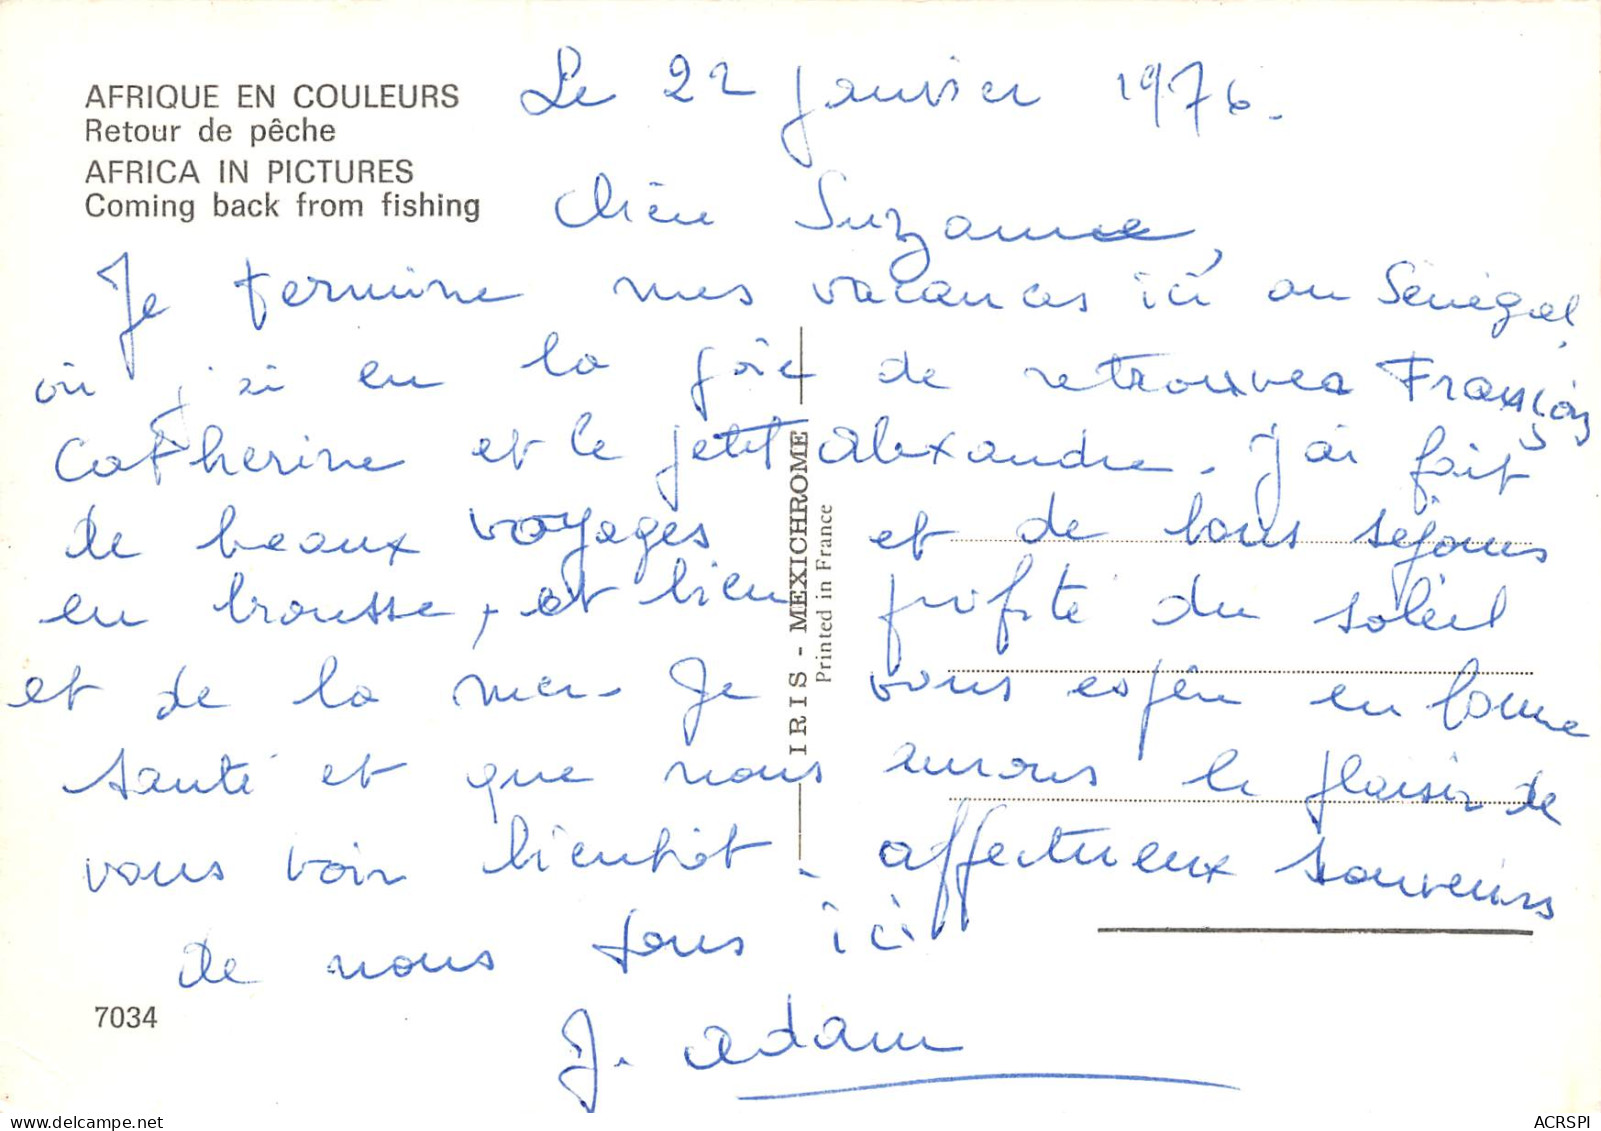 AFRIQUE EN COULEURS
Retour de pêche
AFRICA IN PICTURES
Coming back from fishing
Le 22 janvier 1976.
Chère Suzanne,
Je termine mes vacances ici au Sénégal,
où j'ai eu la joie de retrouver François
Catherine et le petit Alexandre. J'ai fait
de beaux voyages et de bons séjours
en brousse, et bien profité du soleil
et de la mer. Je vous espère en bonne
santé et que nous aurons le plaisir de
vous voir bientôt. affectueux souvenirs
de nous tous ici
J. Adam
IRIS - MEXICHROME
Printed in France
7034
ACRSPI